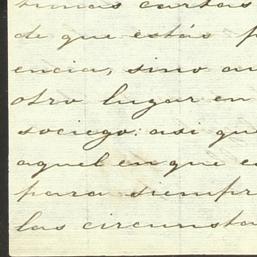 timas cartas
de que estás p
encia, sino au
otro lugar en
sociego: asi qu
aquel en que e
para siempr
las circunsta